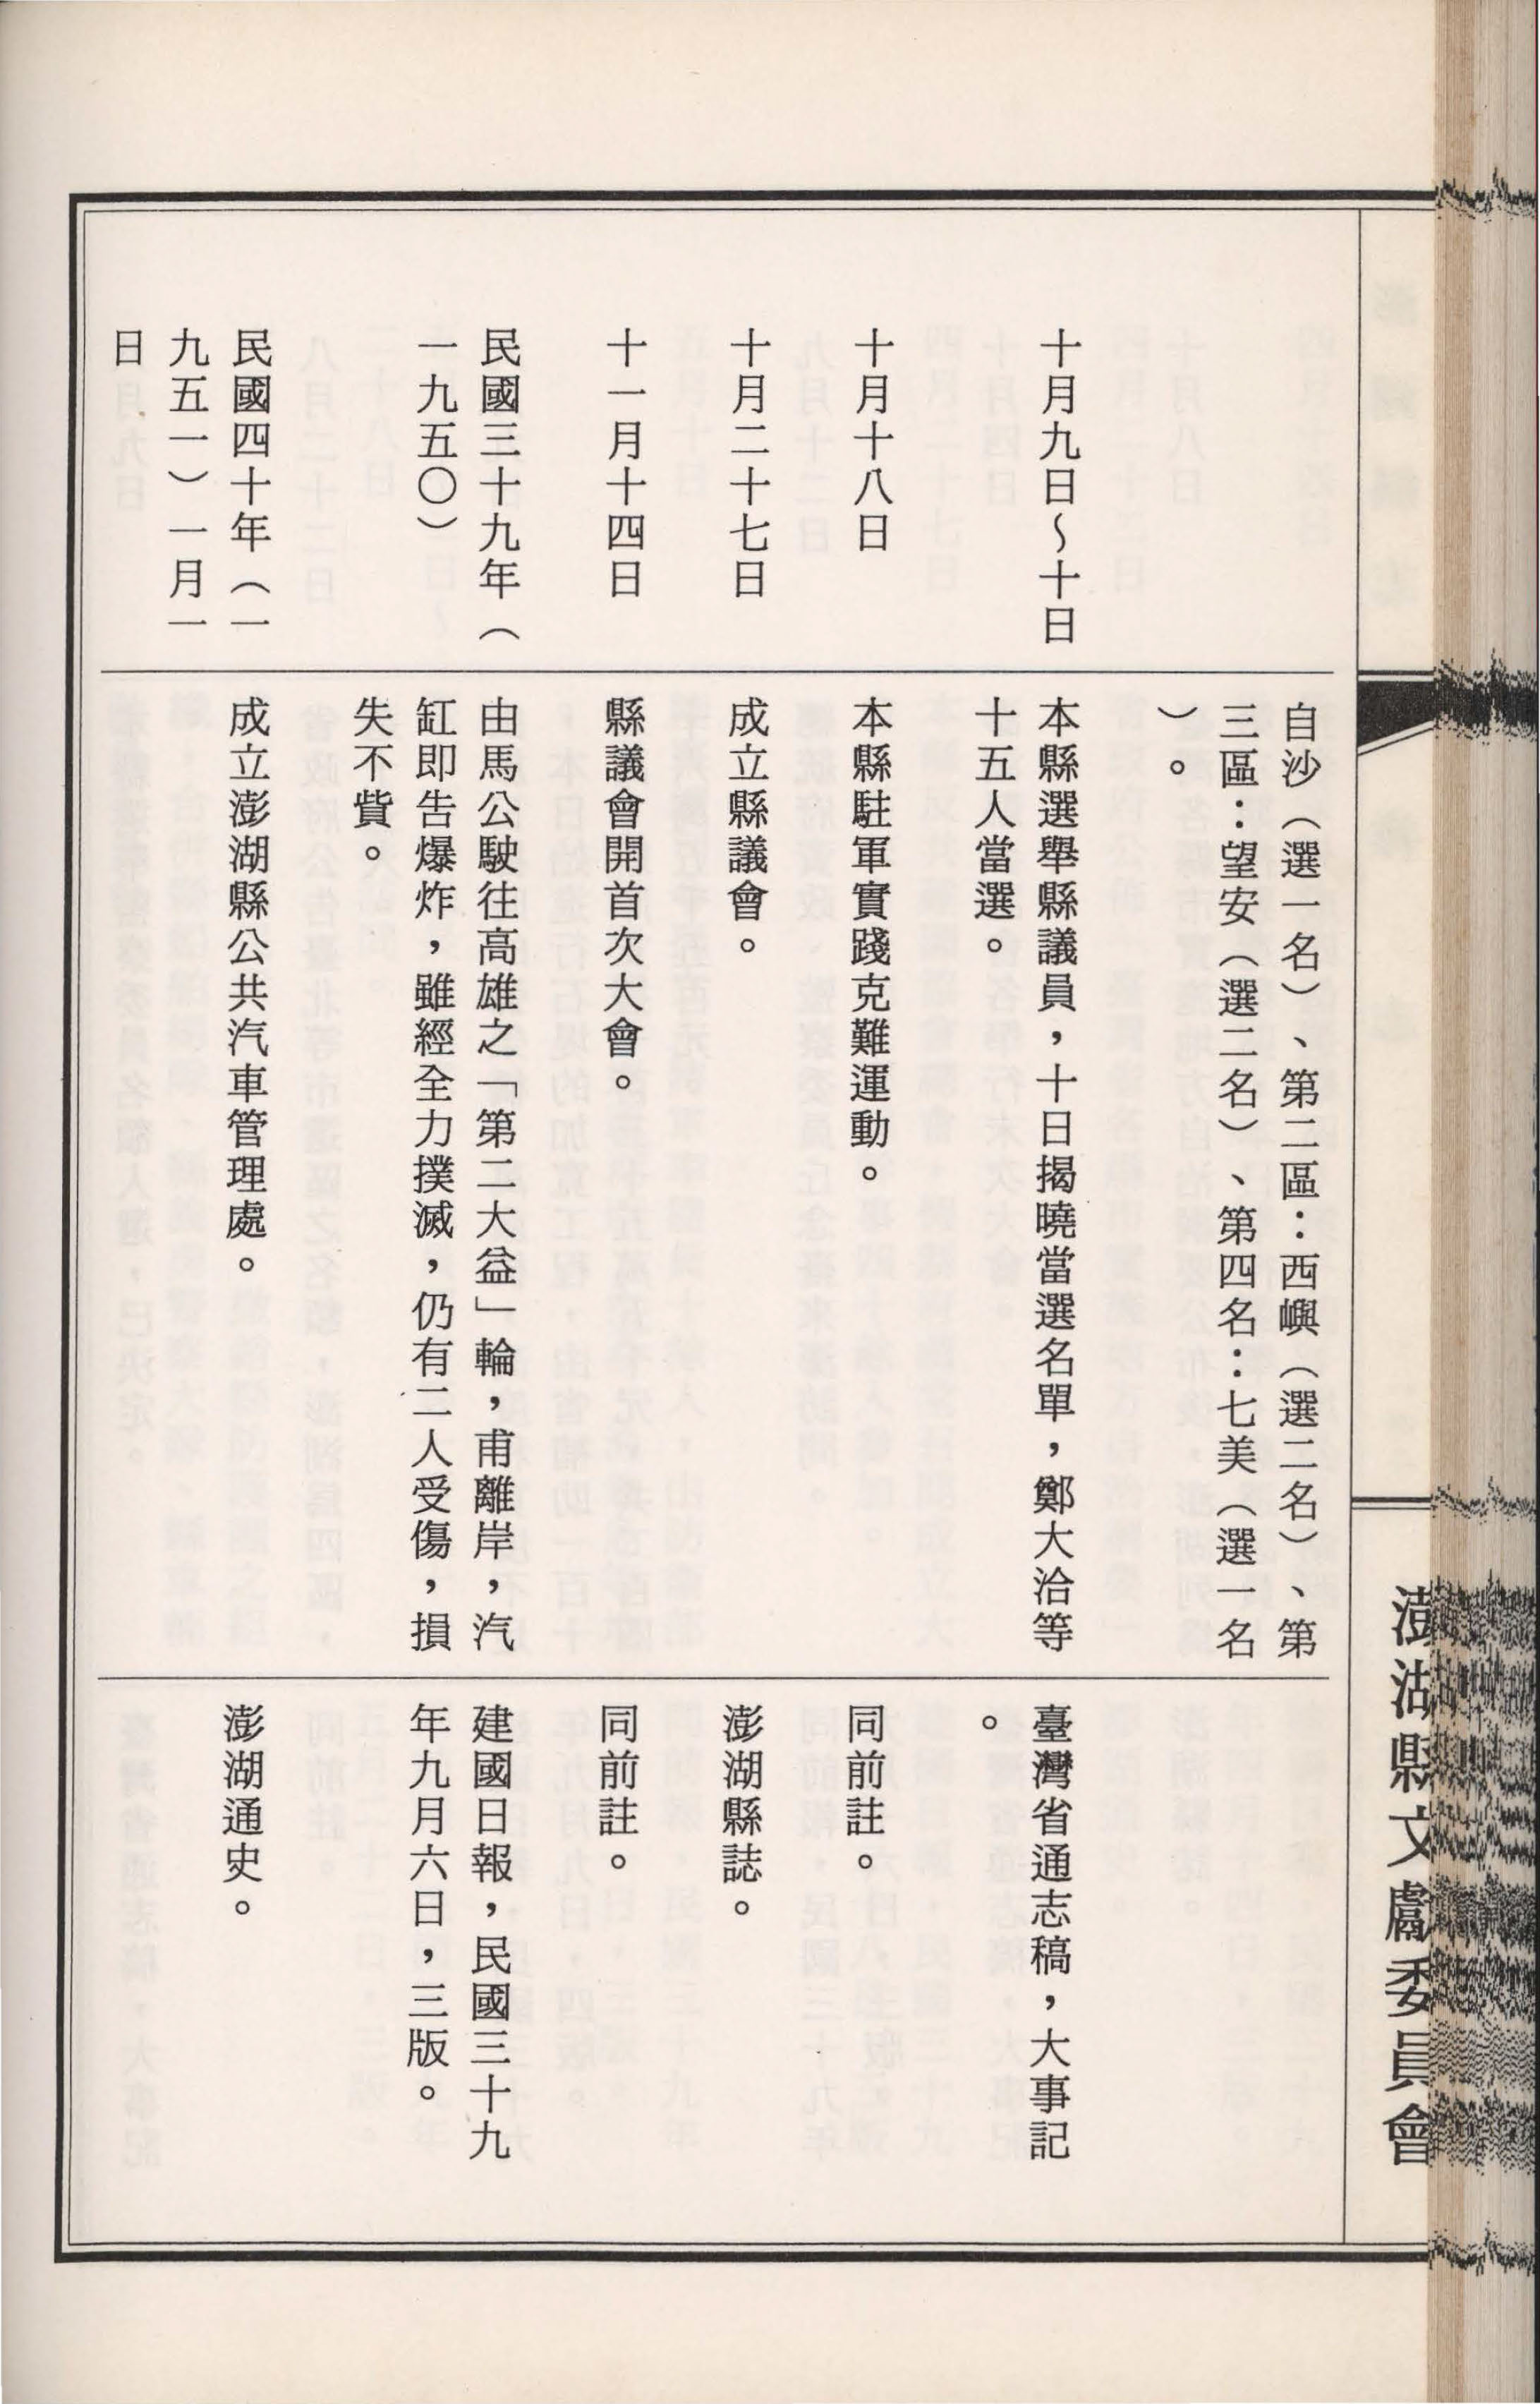 自沙（選一名）、第二區：西嶼（選二名）、第
三區：望安（選二名）、第四名：七美（選一名
）。
十月九日～十日
本縣選舉縣議員，十日揭曉當選名單，鄭大洽等
十五人當選。
臺灣省通志稿，大事記
。
十月十八日
本縣駐軍實踐克難運動。
同前註。
十月二十七日
成立縣議會。
澎湖縣誌。
十一月十四日
縣議會開首次大會。
同前註。
民國三十九年（
一九五〇）
由馬公駛往高雄之「第二大益」輪，甫離岸，汽
缸即告爆炸，雖經全力撲滅，仍有二人受傷，損
失不貲。
建國日報，民國三十九
年九月六日，三版。
民國四十年（一
九五一）一月一
日
成立澎湖縣公共汽車管理處。
澎湖通史。
澎湖縣文獻委員會